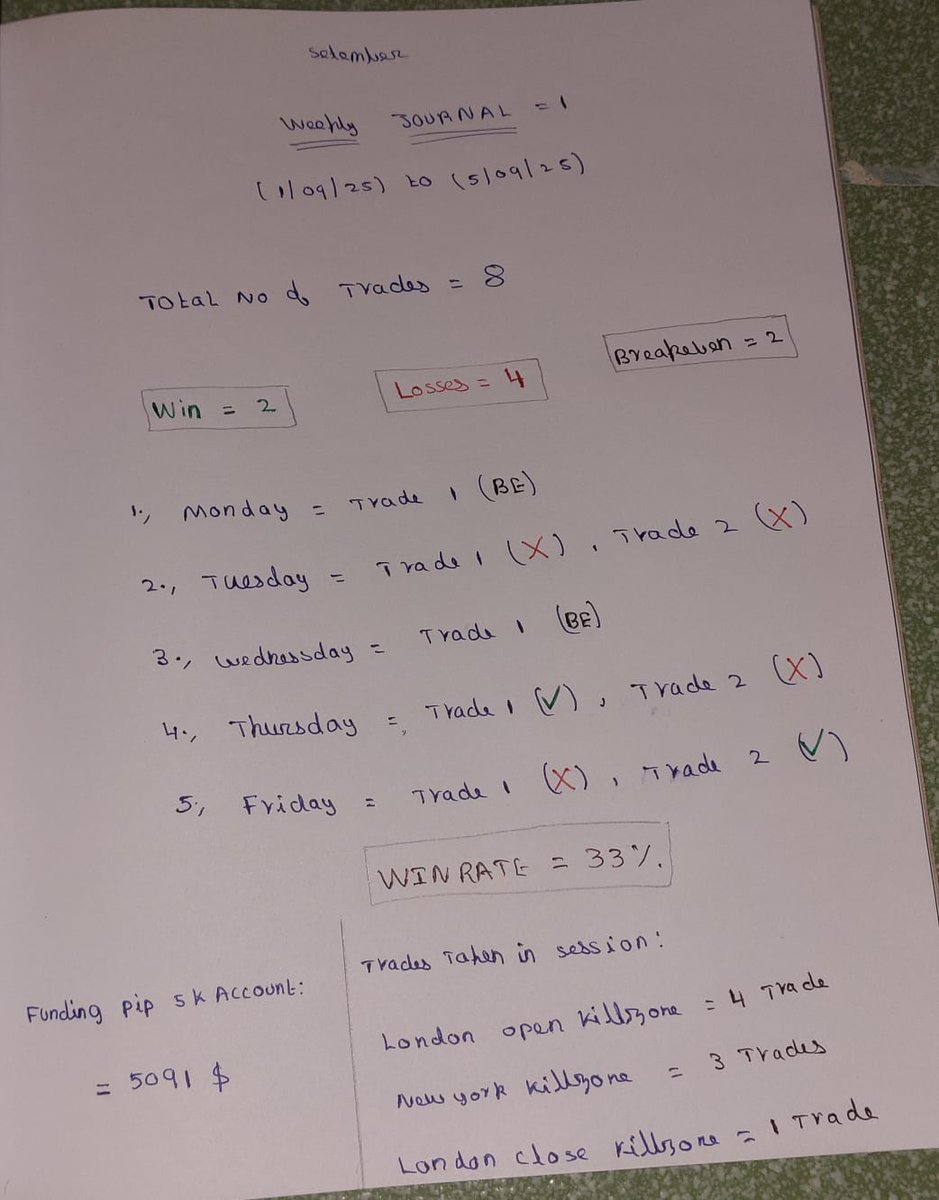 Setember
Weekly JOURNAL = 1
(1/09/25) to (5/09/25)
Total No of Trades = 8
Breakeven = 2
Losses = 4
Win = 2
1., Monday = Trade 1 (BE)
2., Tuesday = Trade 1 (X), Trade 2 (X)
3., Wednessday = Trade 1 (BE)
4., Thursday = Trade 1 (✓), Trade 2 (X)
5., Friday = Trade 1 (X), Trade 2 (✓)
WIN RATE = 33%.
Funding pip 5k Account:
= 5091 $
Trades Taken in session:
London open killzone = 4 Trade
New york killzone = 3 Trades
London close killzone = 1 Trade